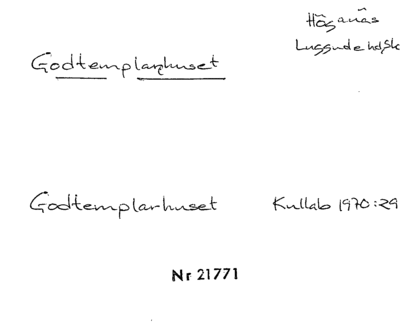 Höganäs
Luggude hd, Sk
Godtemplarhuset
Godtemplarhuset Kullab 1970:29
Nr 21771